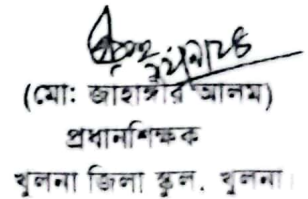 (মো: জাহাঙ্গীর আলম)
প্রধানশিক্ষক
খুলনা জিলা স্কুল, খুলনা।